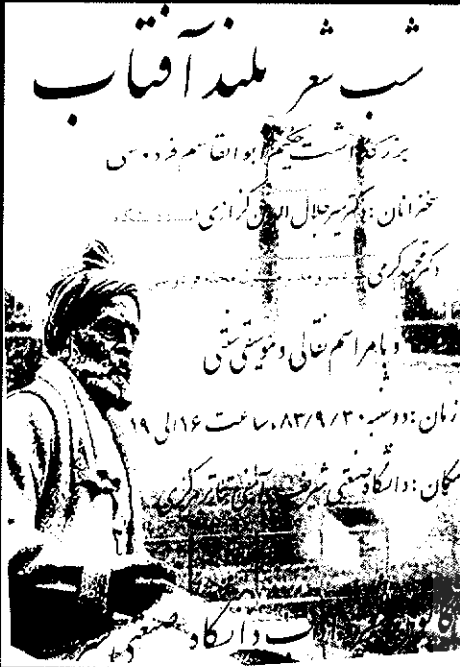 شب شعر بلند آفتاب
بزرگداشت حکیم ابوالقاسم فردوسی
سخنرانان: دکتر میر جلال الدین کزازی استاد دانشگاه
دکتر
و با مراسم نقالی و موسیقی سنتی
زمان: دوشنبه ۸۳/۹/۳۰، ساعت ۱۶ الی ۱۹
مکان: دانشگاه صنعتی شریف، آمفی تئاتر مرکزی
دانشگاه صنعتی